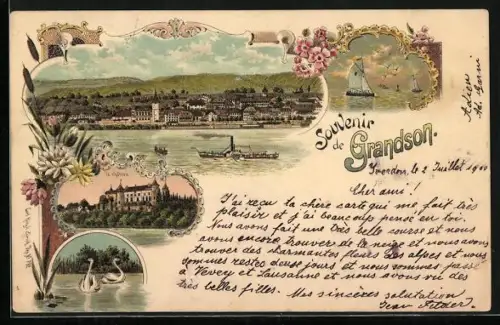 Souvenir
de
Grandson.
Yverdon, le 2 Juillet 1900
Cher ami!
J'ai reçu ta chère carte qui me fait très
plaisir et j'ai beaucoup pensé en toi.
Nous avons fait une très belle course et nous
avons encore trouver de la neige et nous avons
trouver des charmantes fleurs des alpes et nous
sommes resté deux jours et nous sommes passé
à Vevey et Lausanne et nous avons vu des
très belles filles. Mes sincères salutation
Jean
Adieu